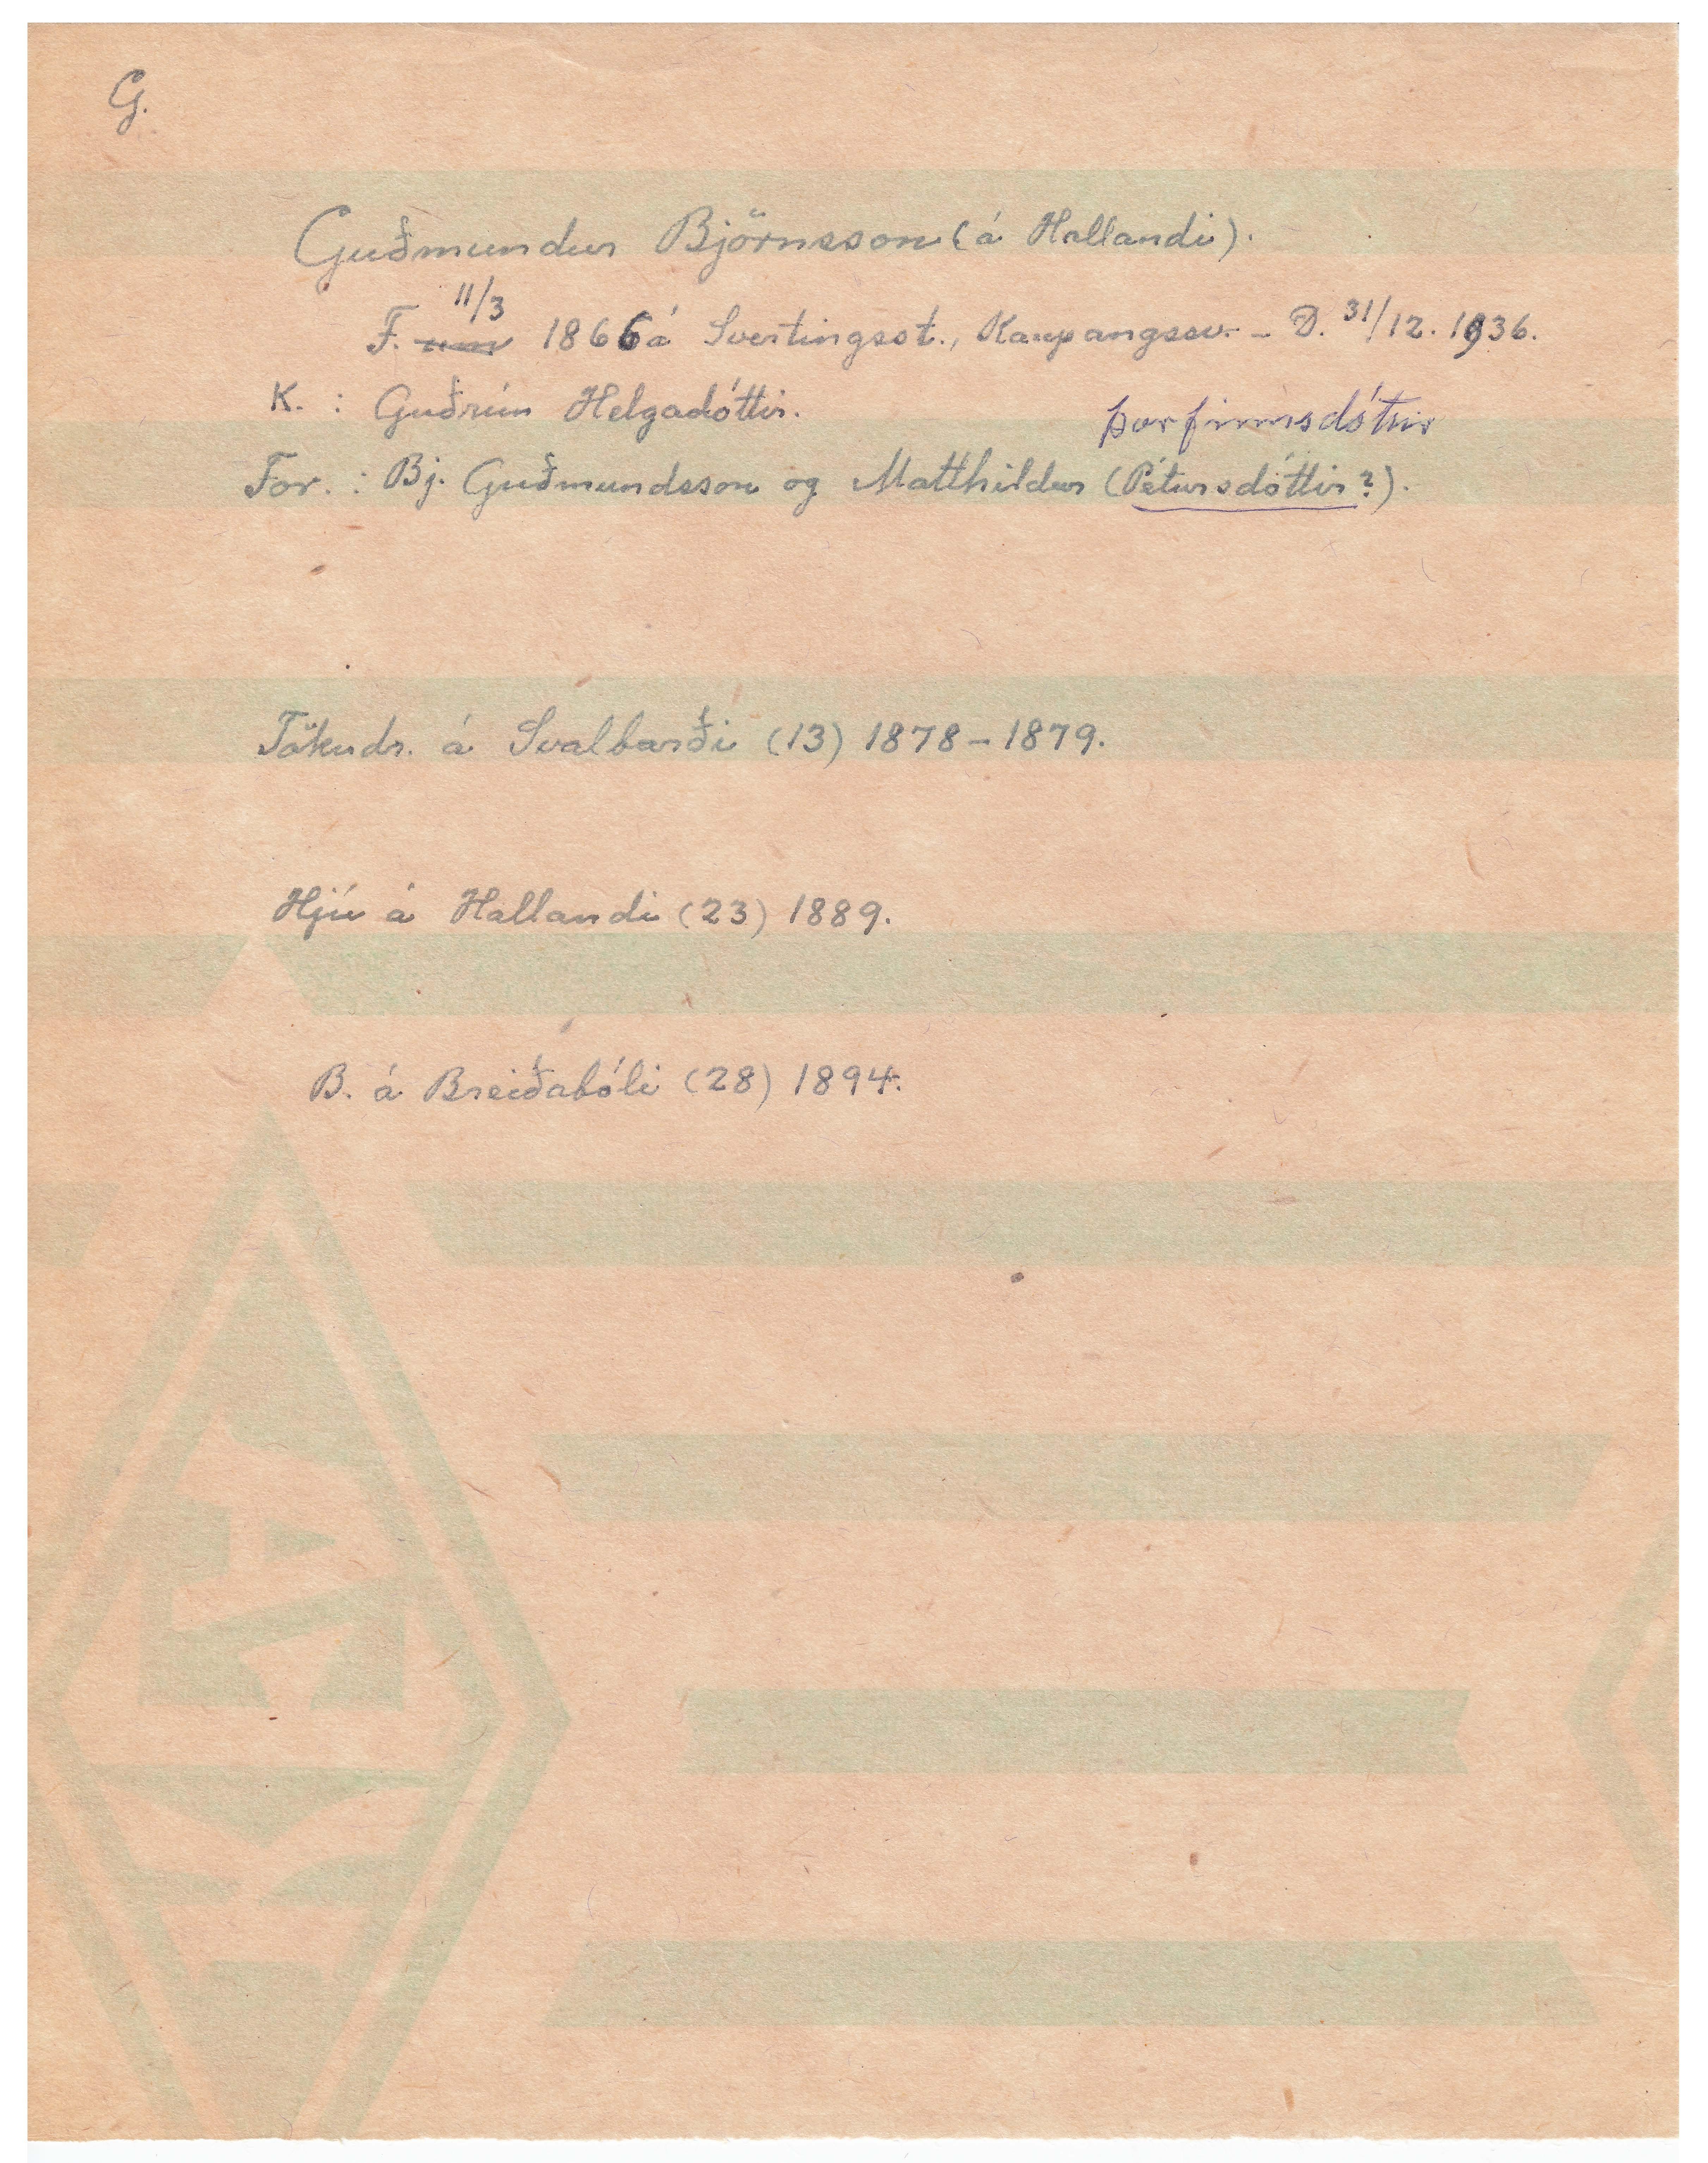 G.
Guðmundur Björnsson (á Hallandi).
11/3
F. um 1866 á Svertingsst., Kaupangssv. - D. 31/12. 1936.
K. : Guðrún Helgadóttir.
Þorfinnsdóttir
For. : Bj. Guðmundsson og Matthildur (Pétursdóttir?).
Tökudr. á Svalbarði (13) 1878-1879.
Hjú á Hallandi (23) 1889.
B. á Breiðabóli (28) 1894.